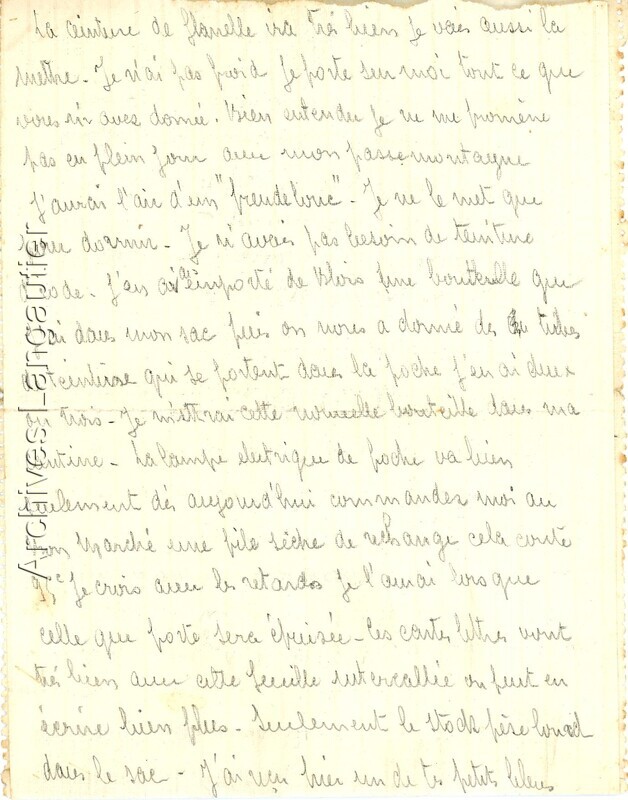 La ceinture de flanelle ira très bien Je vais aussi la
mettre - Je n'ai pas froid Je porte sur moi tout ce que
vous m'avez donné. Bien entendu Je ne me promène
pas en plein Jour avec mon passe montagne
J'aurais l'air d'un " ". Je ne le met que
pour dormir - Je n'avais pas besoin de teinture
d'iode. J'en ai emporté de Blois une bouteille que
J'ai dans mon sac puis on nous a donné des tubes
de teinture qui se portent dans la poche J'en ai deux
ou trois - Je mettrai cette nouvelle bouteille dans ma
cantine - La lampe electrique de poche va bien
seulement dès aujourd'hui commandez moi au
Bon Marché une pile sèche de rechange cela coute
Je crois avec les retards Je l'aurai lorsque
celle que porte sera épuisée - Ces cartes lettres vont
très bien avec cette feuille intercallée on peut en
écrire bien plus - Seulement le stock pèse lourd
dans le sac - J'ai reçu hier un de tes petits bleus
Archives J-Langautier